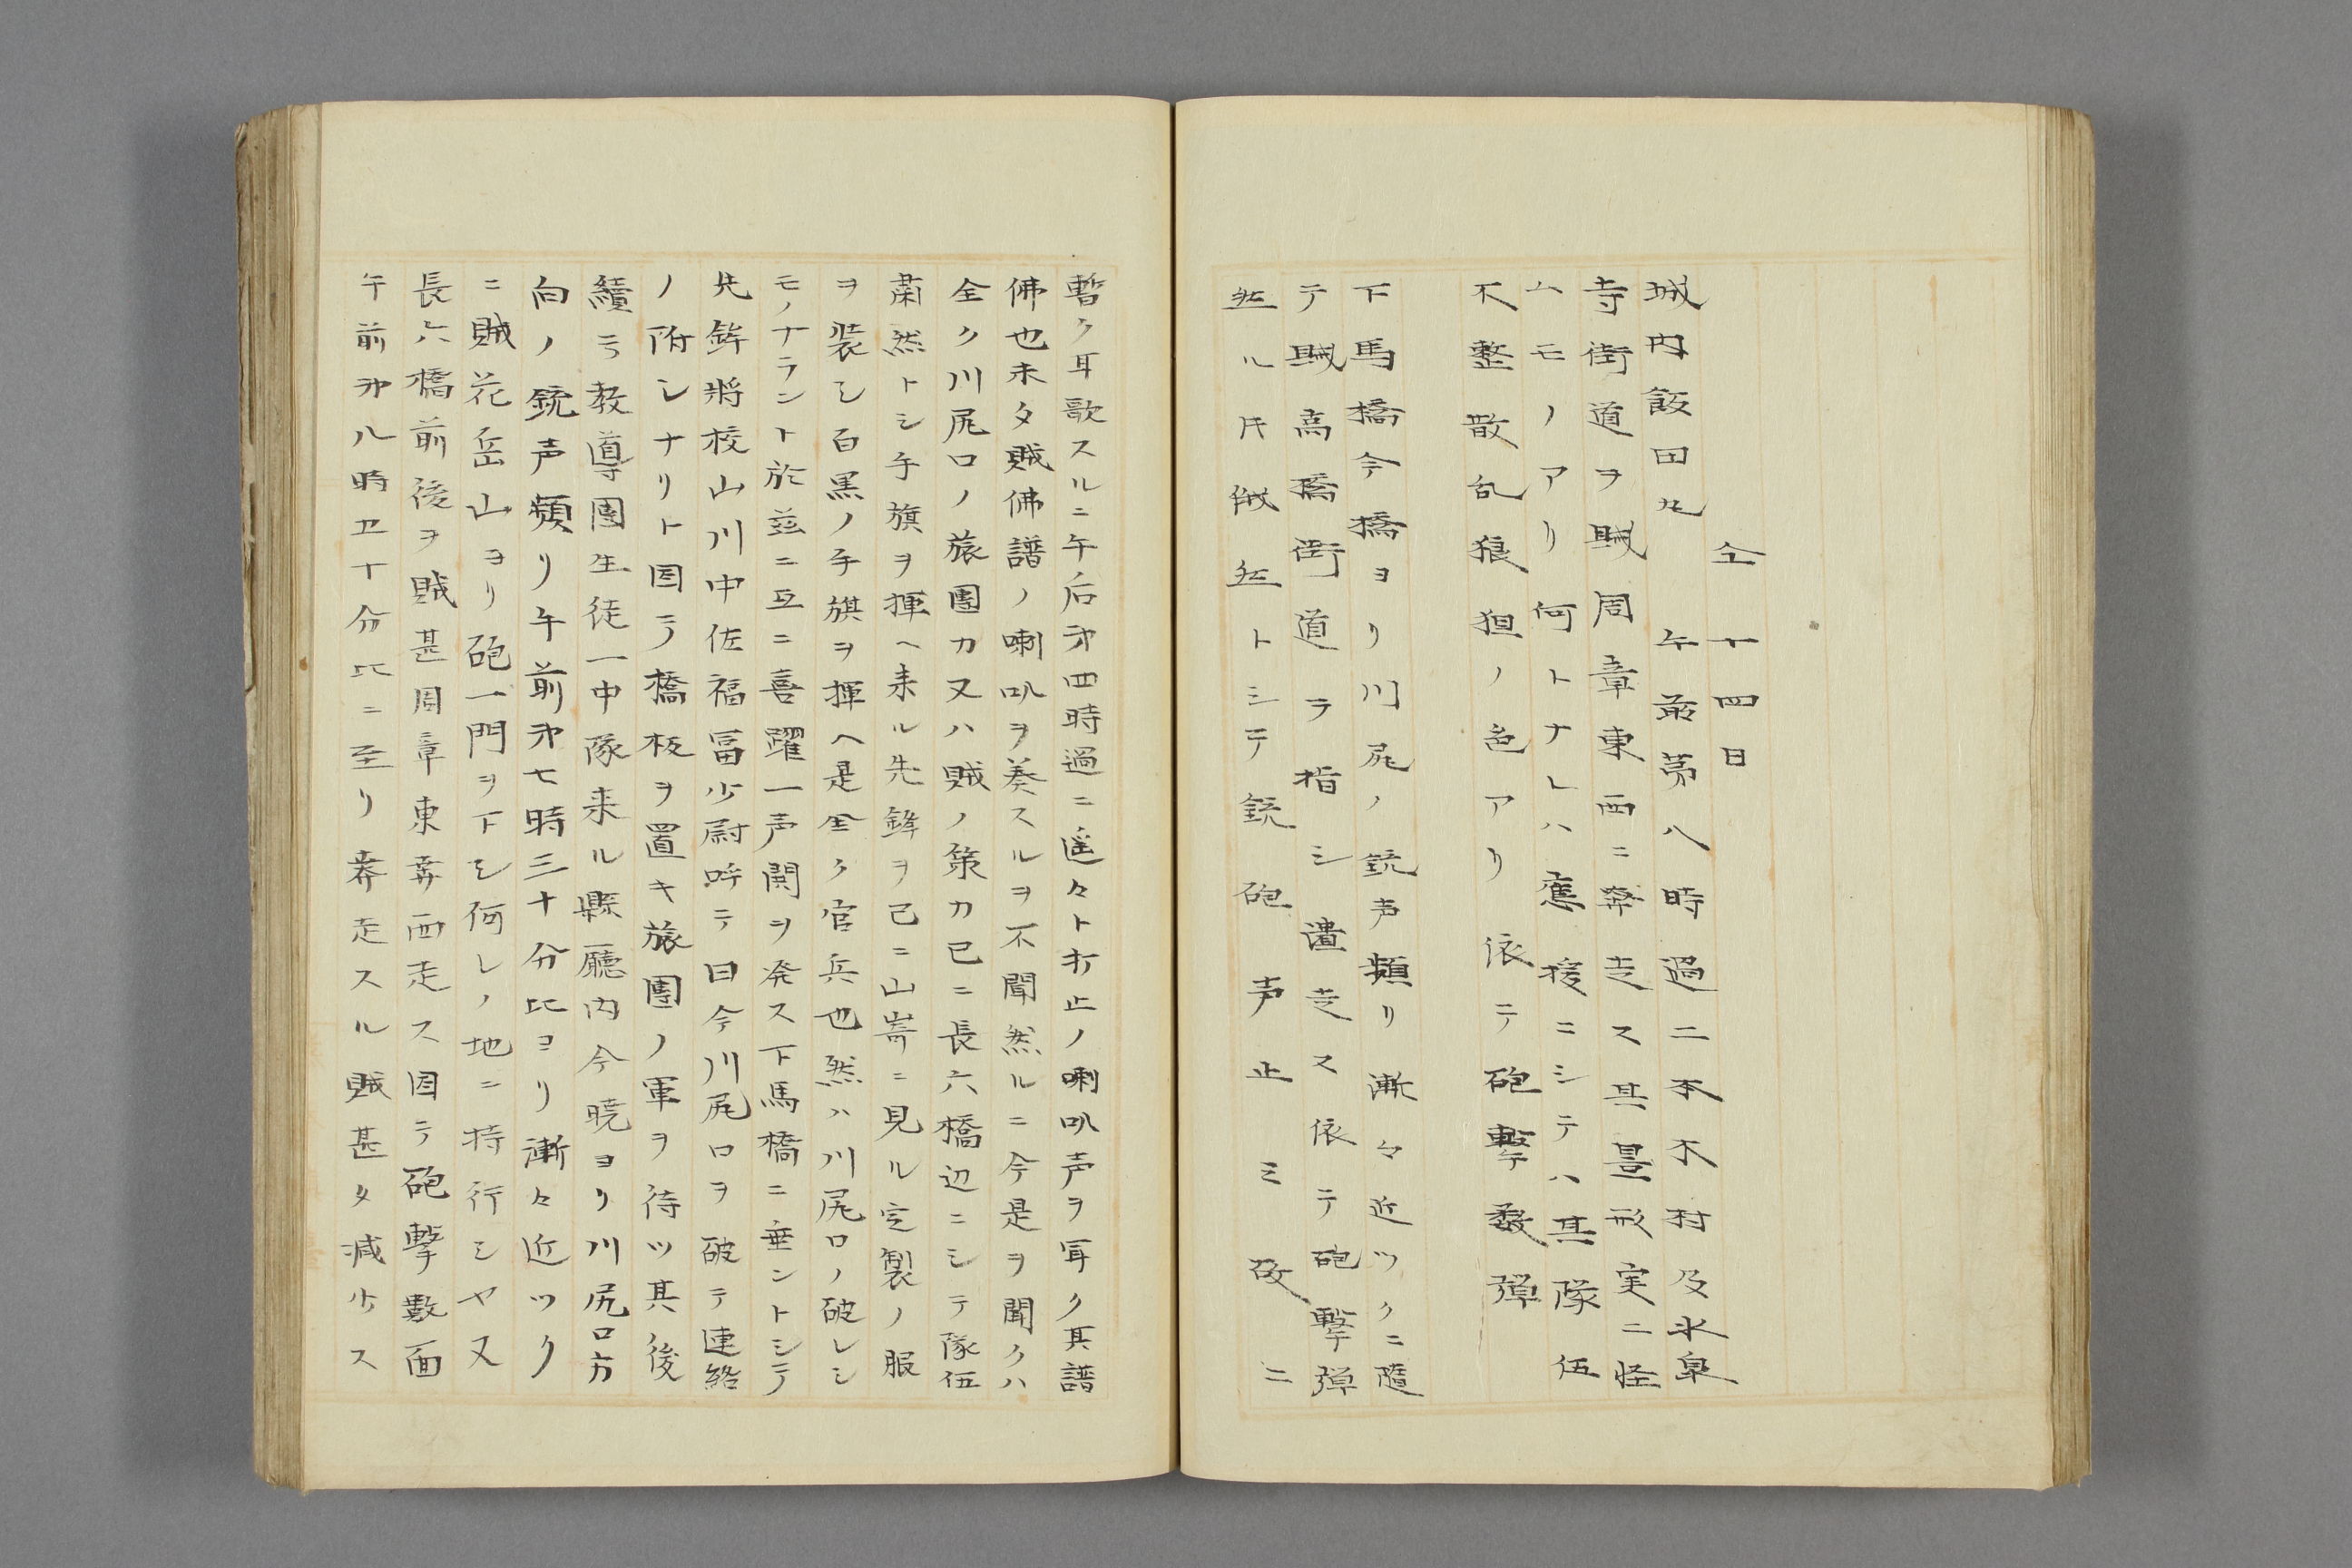 仝十四日
城内飯田丸 午前第八時過二本木村及水皐
寺街道ヲ賊周章東西ニ奔走ス其景形実ニ怪
ムモノアリ何トナレハ應援ニシテハ其隊伍
不整散乱狼狽ノ色アリ依テ砲撃数弾
下馬橋今橋ヨリ川尻ノ銃声頻リ漸々近ツクニ随
テ賊高橋街道ヲ指シ遁走ス依テ砲撃弾
然ル𪜈俄然トシテ銃砲声止ミ故ニ
暫ク耳歌スルニ午后㐧四時過ニ遥々ト打止ノ喇叭声ヲ耳ク其譜
佛也未タ賊佛譜ノ喇叭ヲ奏スルヲ不聞然ルニ今是ヲ聞クハ
全ク川尻口ノ旅團カ又ハ賊ノ策カ已ニ長六橋辺ニシテ隊伍
粛然トシ手旗ヲ揮ヘ来ル先鋒ヲ己ニ山嵜ニ見ル定製ノ服
ヲ装シ白黒ノ手旗ヲ揮ヘ是全ク官兵也然ハ川尻口ノ破レシ
モノナラント於茲ニ互ニ喜躍一声鬨ヲ発ス下馬橋ニ垂ントシテ
先鋒将校山川中佐福冨少尉呼テ曰今川尻口ヲ破テ連絡
ノ附シナリト因テ橋板ヲ置キ旅團ノ軍ヲ待ツ其後
續テ教導團生徒一中隊来ル縣廳内今暁ヨリ川尻口方
向ノ銃声頻リ午前㐧七時三十分比ヨリ漸々近ツク
ニ賊花岳山ヨリ砲一門ヲ下シ何レノ地ニ持行シヤ又
長六橋前後ヲ賊甚周章東奔西走ス因テ砲撃數面
午前㐧八時卫丁分比ニ至リ奔走スル賊甚タ減少ス